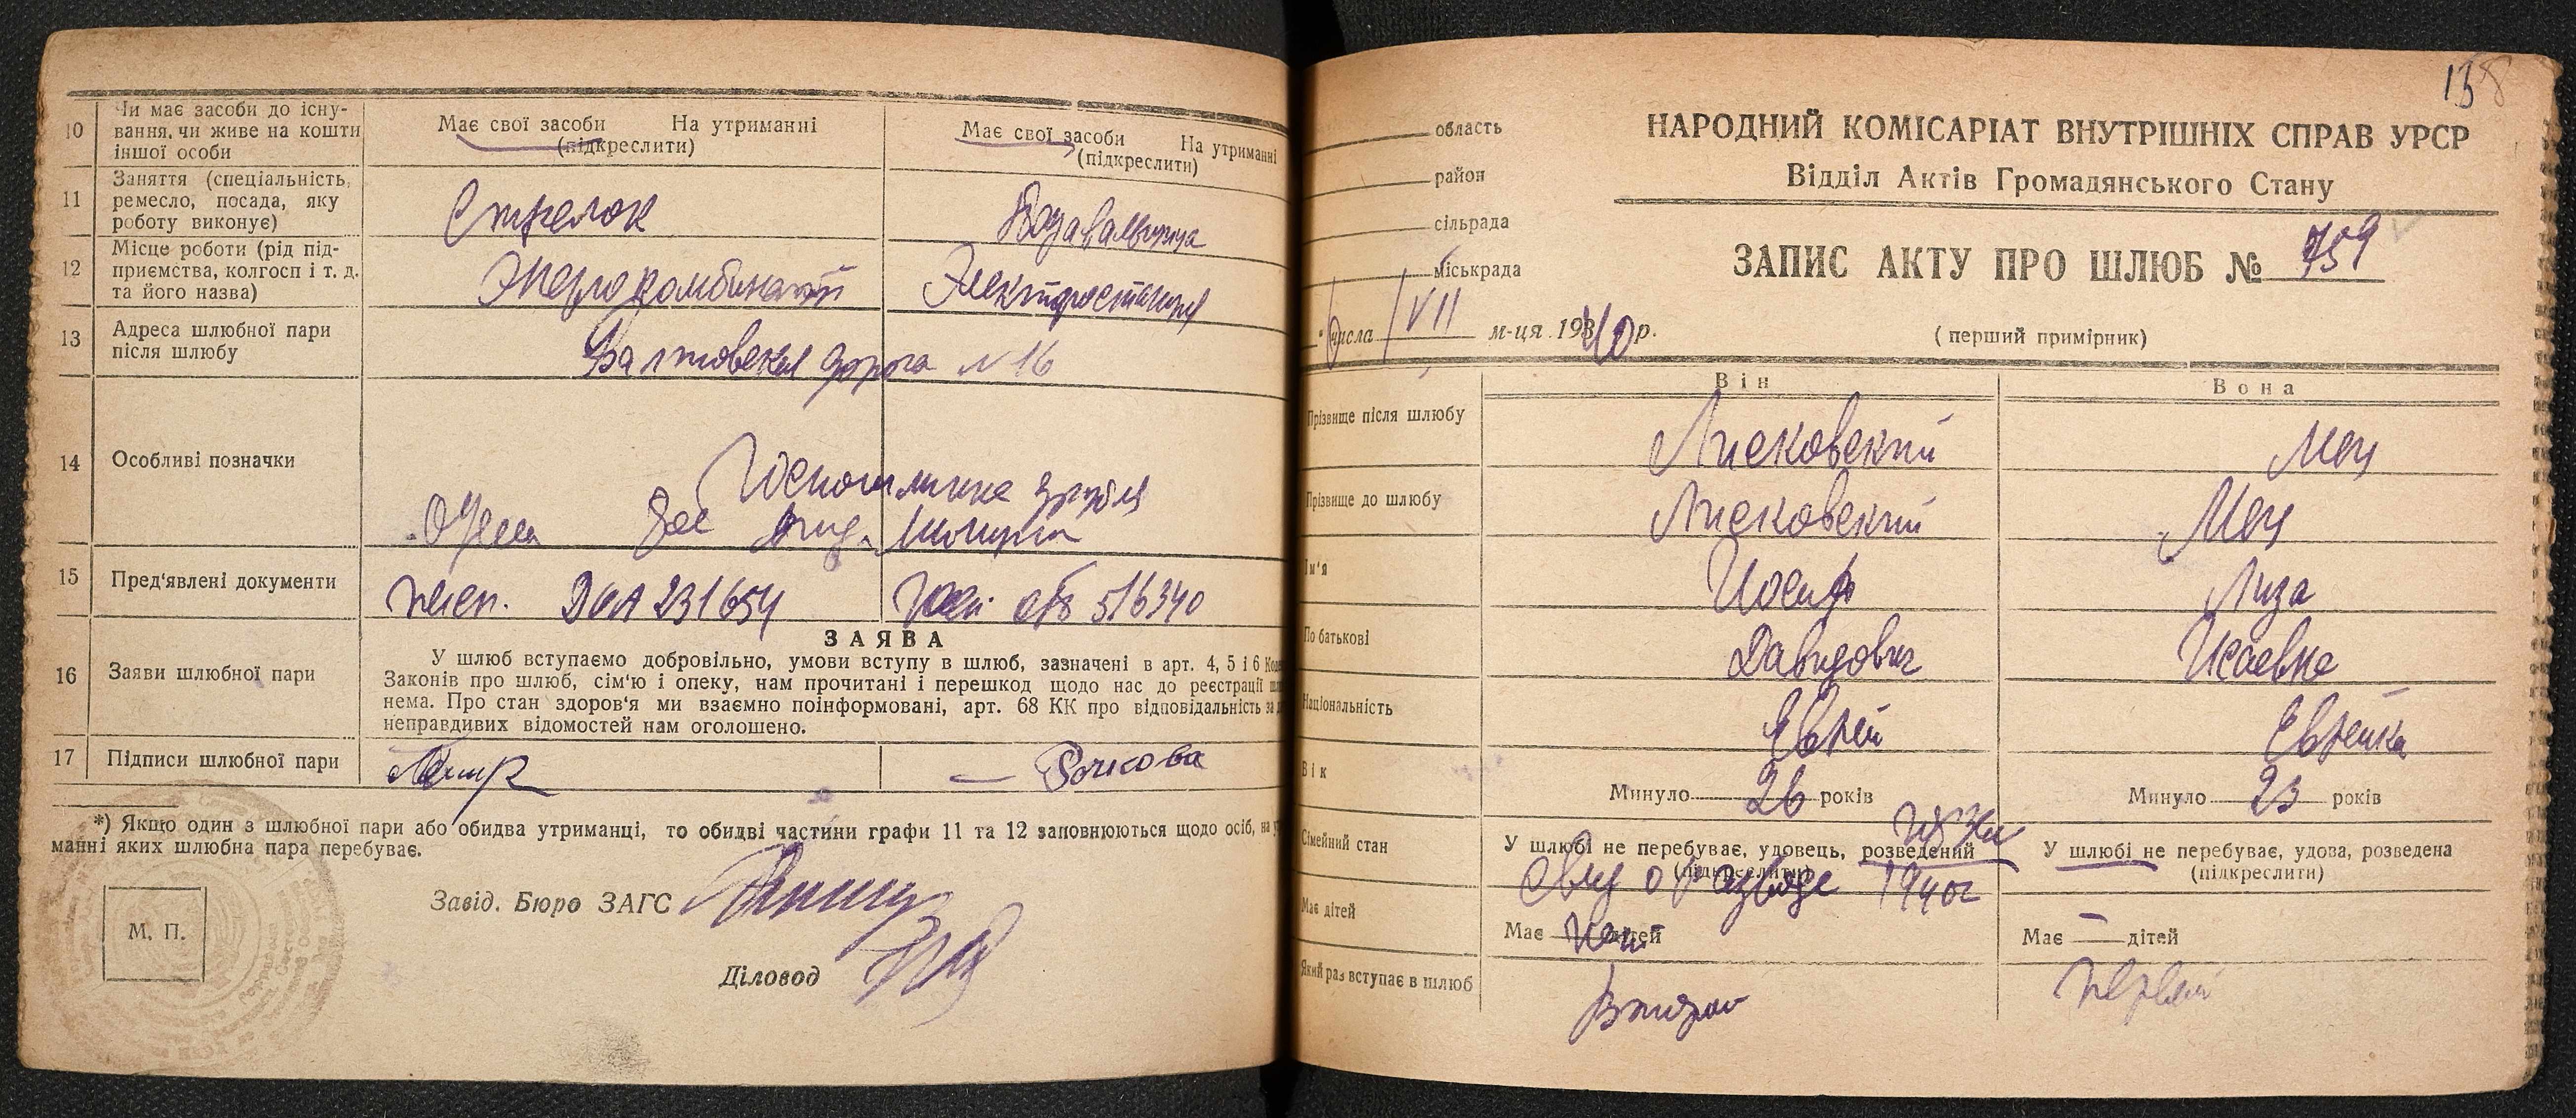 10 Чи має засоби до існу-
вання, чи живе на кошти
іншої особи
Має свої засоби На утриманні
(підкреслити)
Має свої засоби На утриманні
(підкреслити)
11 Заняття (спеціальність,
ремесло, посада, яку
роботу виконує)
Стрелок
12 Місце роботи (рід під-
приємства, колгосп і т. д.
та його назва)
Электростанция
13 Адреса шлюбної пари
після шлюбу
дорога N 16
14 Особливі позначки
15 Пред'явлені документи
231654
516340
16 Заяви шлюбної пари
ЗАЯВА
У шлюб вступаємо добровільно, умови вступу в шлюб, зазначені в арт. 4, 5 і 6
Законів про шлюб, сім'ю і опеку, нам прочитані і перешкод щодо нас до реєстрації
нема. Про стан здоров'я ми взаємно поінформовані, арт. 68 КК про відповідальність за
неправдивих відомостей нам оголошено.
17 Підписи шлюбної пари
*) Якщо один з шлюбної пари або обидва утриманці, то обидві частини графи 11 та 12 заповнюються щодо осіб, на
манні яких шлюбна пара перебуває.
М. П.
Завід. Бюро ЗАГС
Діловод
область
район
сільрада
міськрада
числа VII м-ця 1940 р.
НАРОДНИЙ КОМІСАРІАТ ВНУТРІШНІХ СПРАВ УРСР
Відділ Актів Громадянського Стану
ЗАПИС АКТУ ПРО ШЛЮБ № 759
(перший примірник)
Він
Вона
Прізвище після шлюбу Лисковский
Прізвище до шлюбу Лисковский
Ім'я Иосиф Лиза
По батькові Давидович Исаевна
Національність Еврей Еврейка
Вік Минуло 26 років Минуло 23 років
Сімейний стан
У шлюбі не перебуває, удовець, розведений
(підкреслити)
о разводе 1940г
У шлюбі не перебуває, удова, розведена
(підкреслити)
Має дітей
Має нет дітей
Має — дітей
Який раз вступає в шлюб
Второй
Первый